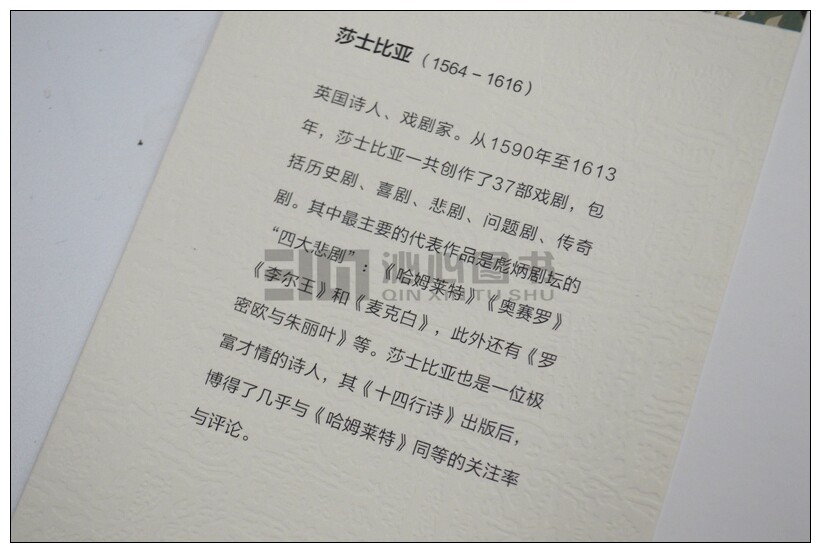 莎士比亚（1564－1616）
英国诗人、戏剧家。从1590年至1613
年，莎士比亚一共创作了37部戏剧，包
括历史剧、喜剧、悲剧、问题剧、传奇
剧。其中最主要的代表作品是彪炳剧坛的
“四大悲剧”：《哈姆莱特》《奥赛罗》
《李尔王》和《麦克白》，此外还有《罗
密欧与朱丽叶》等。莎士比亚也是一位极
富才情的诗人，其《十四行诗》出版后，
博得了几乎与《哈姆莱特》同等的关注率
与评论。
沁心图书
QIN XIN TU SHU